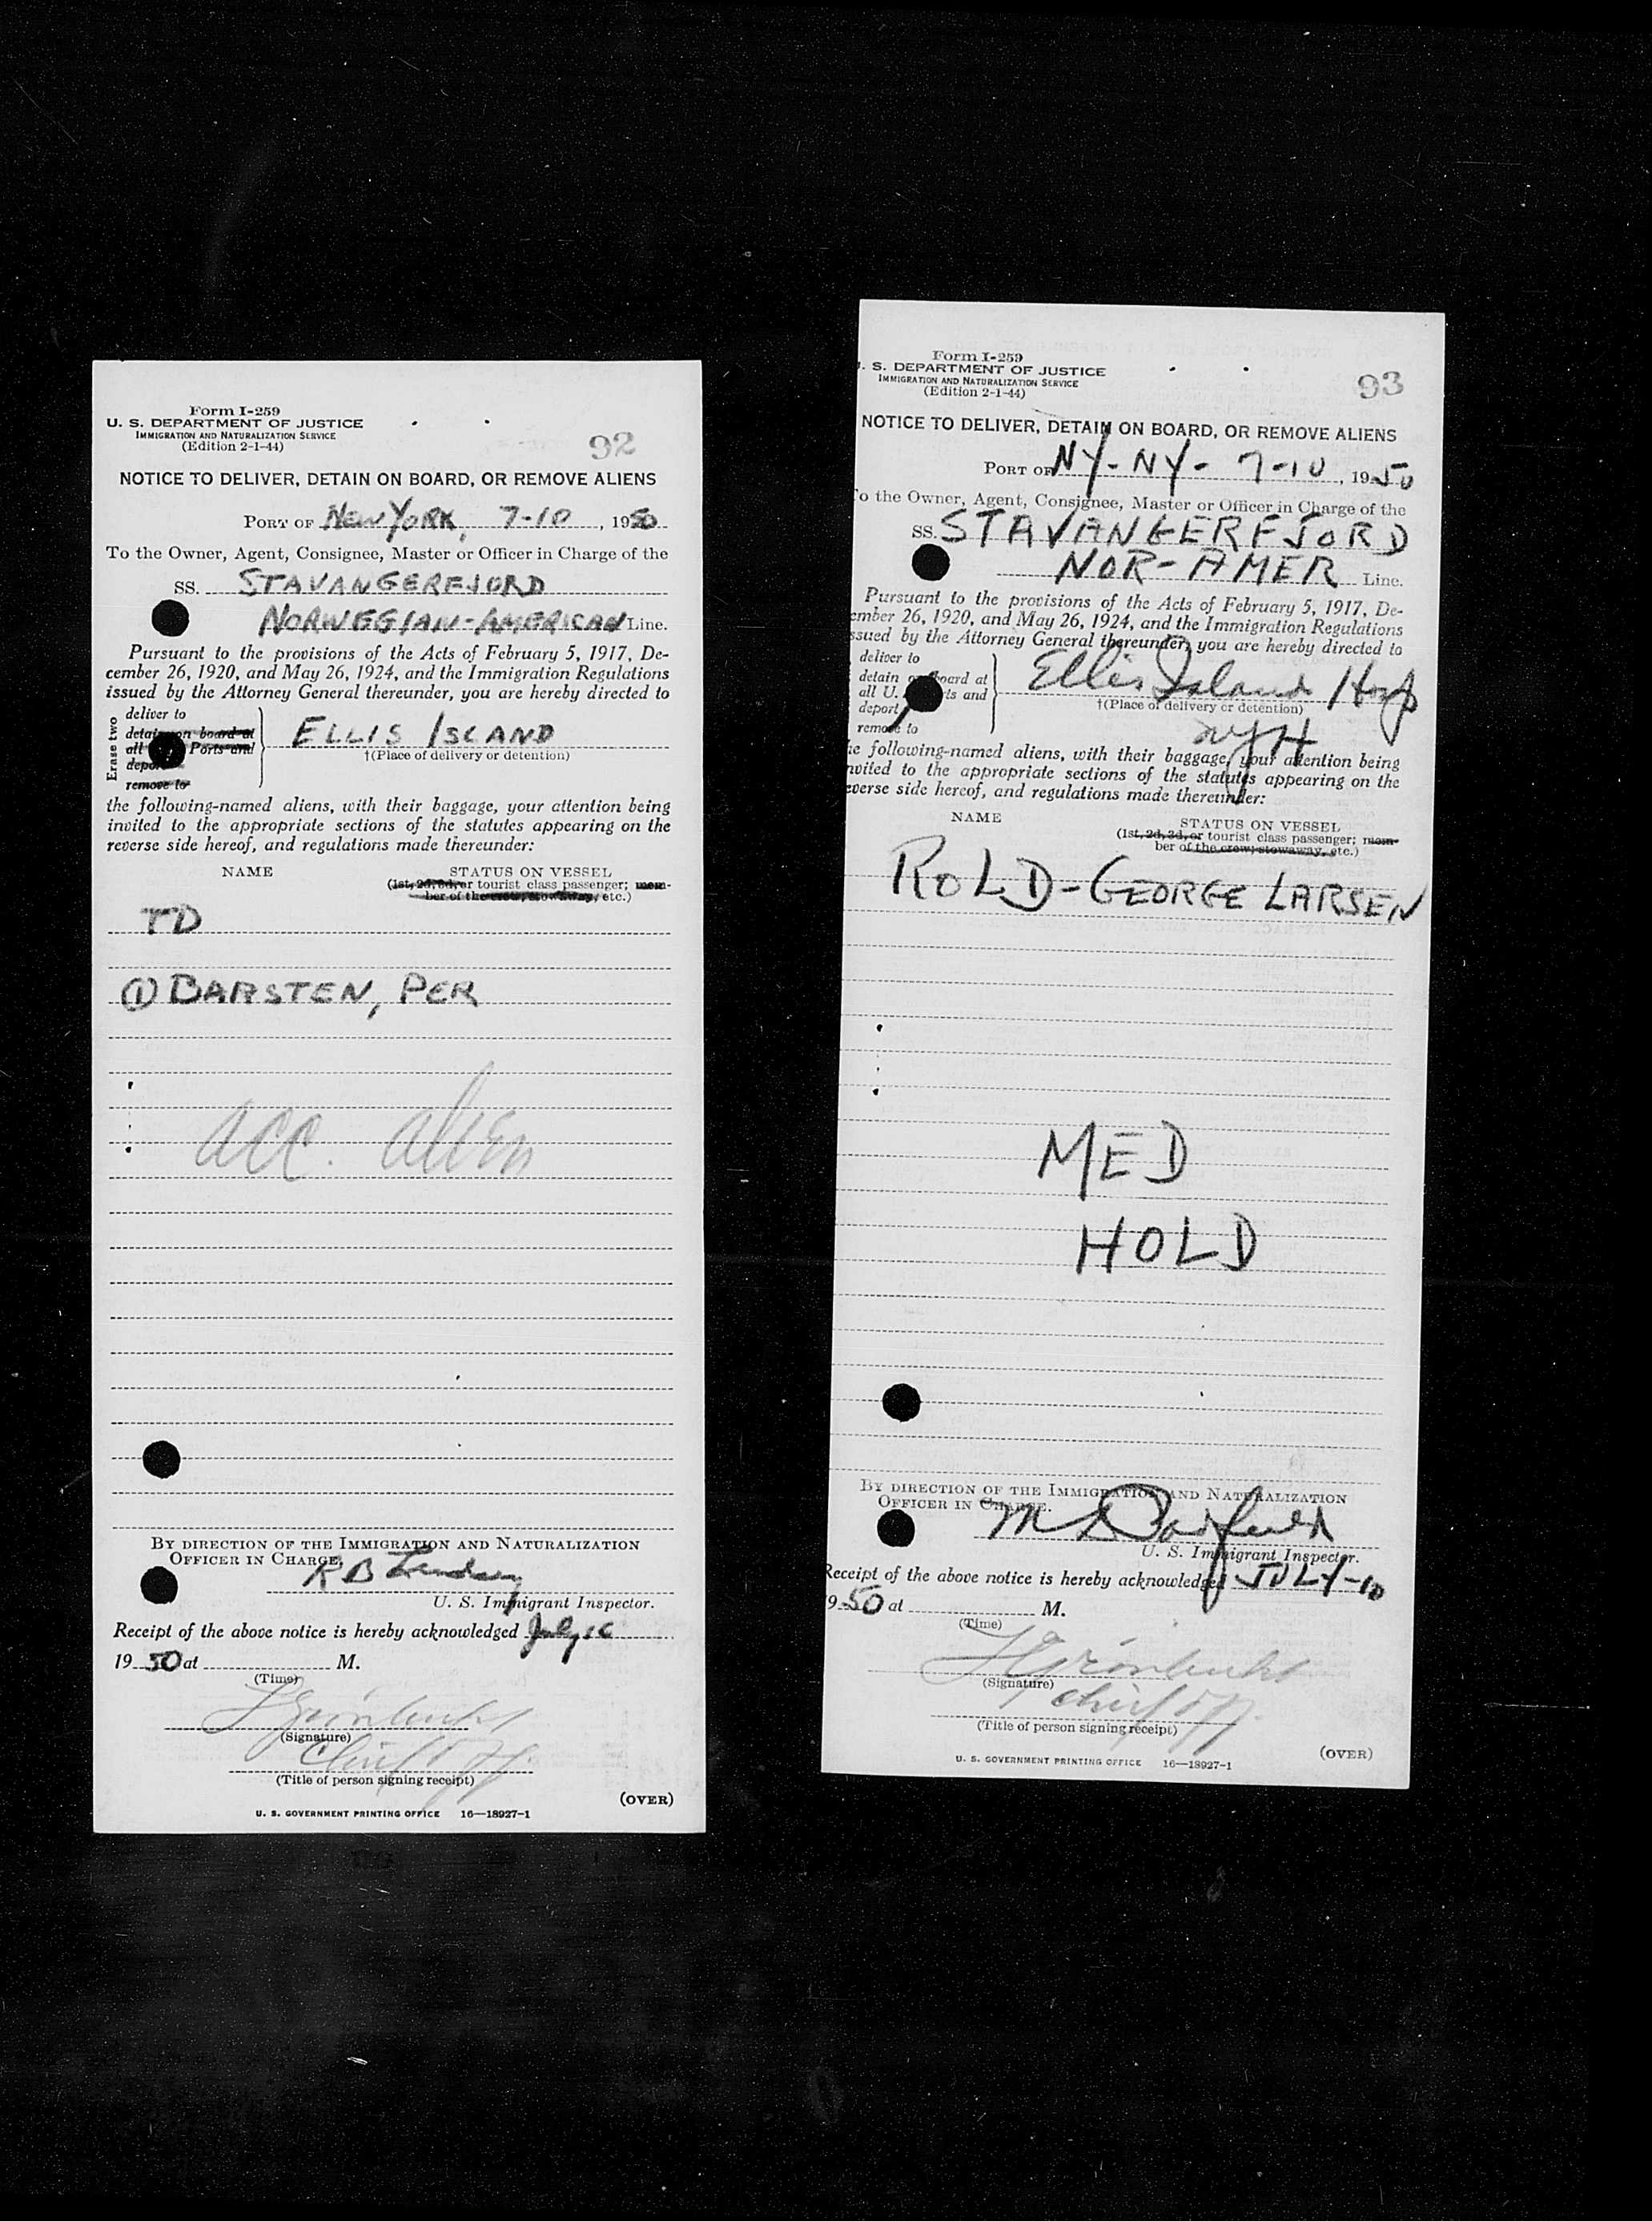 Form I-259
U. S. DEPARTMENT OF JUSTICE
IMMIGRATION AND NATURALIZATION SERVICE
(Edition 2-1-44)
92
NOTICE TO DELIVER, DETAIN ON BOARD, OR REMOVE ALIENS
PORT OF NEW YORK, 7-10, 1950
To the Owner, Agent, Consignee, Master or Officer in Charge of the
SS. STAVANGERFJORD
NORWEGIAN-AMERICAN Line.
Pursuant to the provisions of the Acts of February 5, 1917, De-
cember 26, 1920, and May 26, 1924, and the Immigration Regulations
issued by the Attorney General thereunder, you are hereby directed to
Erase two
deliver to
detain on board at
all Ports and
remove to
ELLIS ISLAND
†(Place of delivery or detention)
the following-named aliens, with their baggage, your attention being
invited to the appropriate sections of the statutes appearing on the
reverse side hereof, and regulations made thereunder:
NAME STATUS ON VESSEL
(1st, 2d, 3d, or tourist class passenger; mem-
ber of the crew, stowaway, etc.)
TD
① BARSTEN, PER
acc. alien
BY DIRECTION OF THE IMMIGRATION AND NATURALIZATION
OFFICER IN CHARGE.
R B Lindsey
U. S. Immigrant Inspector.
Receipt of the above notice is hereby acknowledged July 10
1950 at M.
(Time)
(Signature)
Chief Off.
(Title of person signing receipt)
(OVER)
U. S. GOVERNMENT PRINTING OFFICE 16—18927-1
Form I-259
. S. DEPARTMENT OF JUSTICE
IMMIGRATION AND NATURALIZATION SERVICE
(Edition 2-1-44)
93
NOTICE TO DELIVER, DETAIN ON BOARD, OR REMOVE ALIENS
PORT OF NY-NY- 7-10, 1950
o the Owner, Agent, Consignee, Master or Officer in Charge of the
SS. STAVANGERFJORD
NOR-AMER Line.
Pursuant to the provisions of the Acts of February 5, 1917, De-
ember 26, 1920, and May 26, 1924, and the Immigration Regulations
ssued by the Attorney General thereunder, you are hereby directed to
deliver to
detain on board at
all U. ts and
deport
remove to
Ellis Island Hosp
†(Place of delivery or detention)
NYH
e following-named aliens, with their baggage, your attention being
nvited to the appropriate sections of the statutes appearing on the
everse side hereof, and regulations made thereunder:
NAME STATUS ON VESSEL
(1st, 2d, 3d, or tourist class passenger; mem-
ber of the crew, stowaway, etc.)
ROLD-GEORGE LARSEN
MED
HOLD
BY DIRECTION OF THE IMMIGRATION AND NATURALIZATION
OFFICER IN CHARGE.
U. S. Immigrant Inspector.
Receipt of the above notice is hereby acknowledged JULY-10
950 at M.
(Time)
(Signature)
Chief Off.
(Title of person signing receipt)
(OVER)
U. S. GOVERNMENT PRINTING OFFICE 16—18927-1